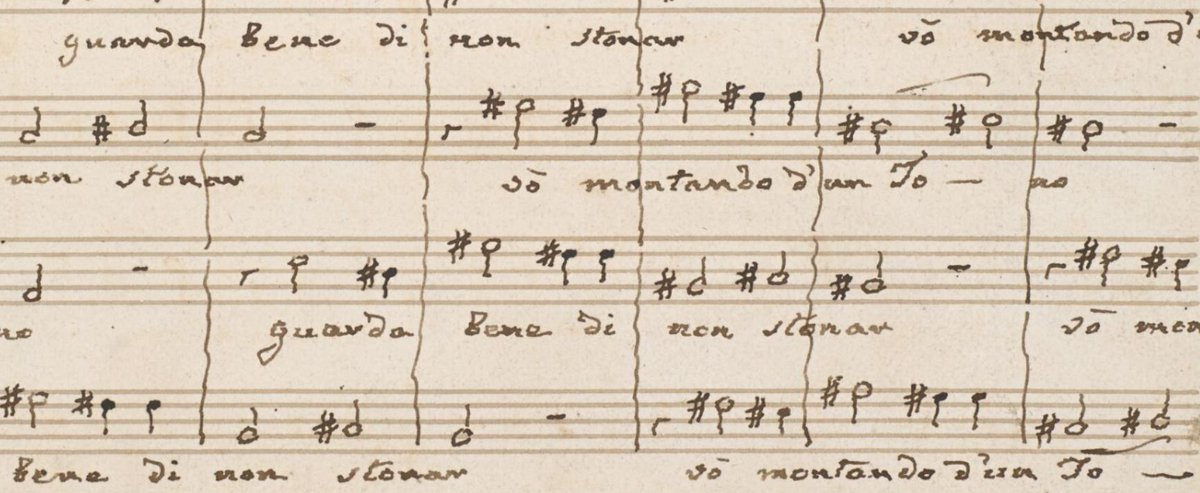 guarda bene di non stonar vō montando d'
non stonar vō montando d'un To — no
no guarda bene di non stonar vō mon
bene di non stonar vō montando d'un To —